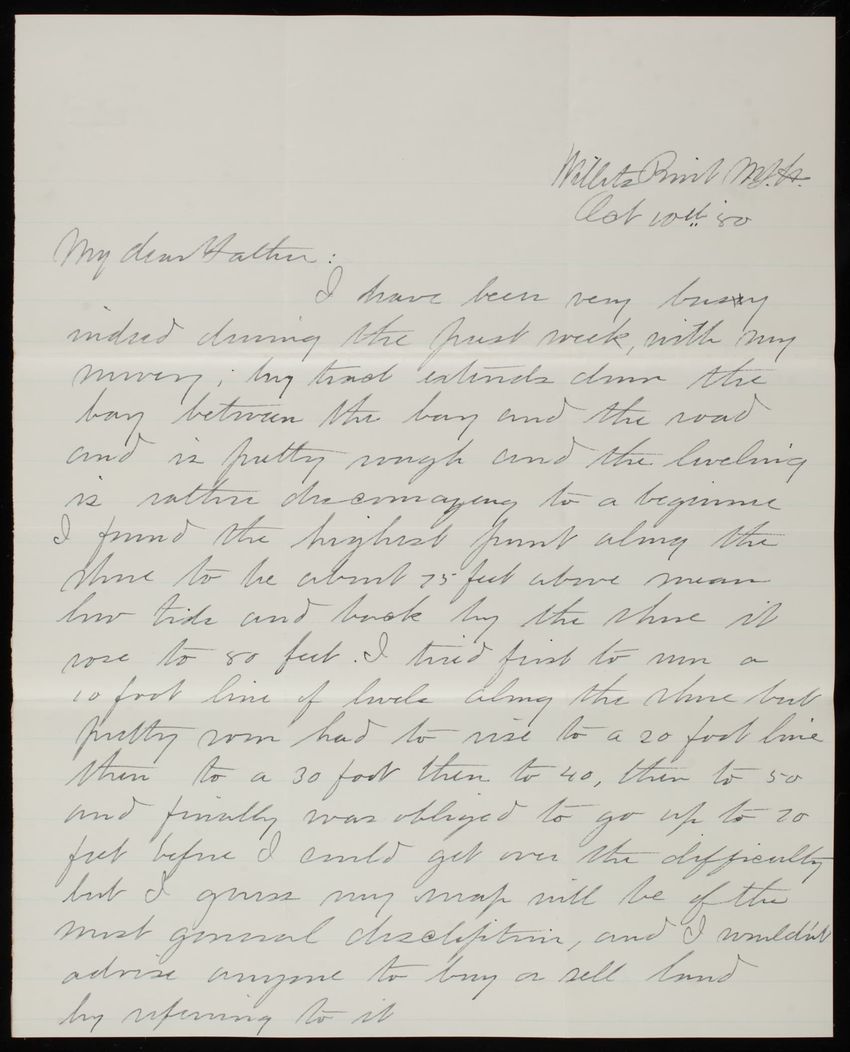 Willets Point N.Y.H.
Oct 10th '80
My dear Father:
I have been very busy
indeed during the past week, with my
survey; my tract extends down the
bay between the bay and the road
and is pretty rough and the leveling
is rather discouraging to a beginner
I found the highest point along the
shore to be about 75 feet above mean
low tide and back by the shore it
rose to 80 feet. I tried first to run a
10 foot line of levels along the shore but
pretty soon had to rise to a 20 foot line
then to a 30 foot then to 40, then to 50
and finally was obliged to go up to 70
feet before I could get over the difficulty
but I guess my map will be of the
most general description, and I wouldn't
advise anyone to buy or sell land
by referring to it